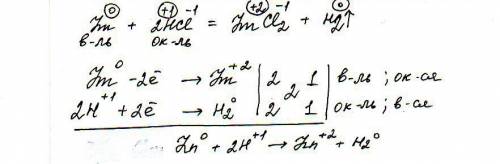 Zn⁰ + 2H⁺¹Cl⁻¹ = Zn⁺²Cl₂⁻¹ + H₂⁰↑
в-ль ок-ль
Zn⁰ -2ē → Zn⁺² | 2 | 2 | 1 | в-ль ; ок-ая
2H⁺¹ + 2ē → H₂⁰ | 2 | 1 | ок-ль ; в-ая
Zn⁰ + 2H⁺¹ → Zn⁺² + H₂⁰